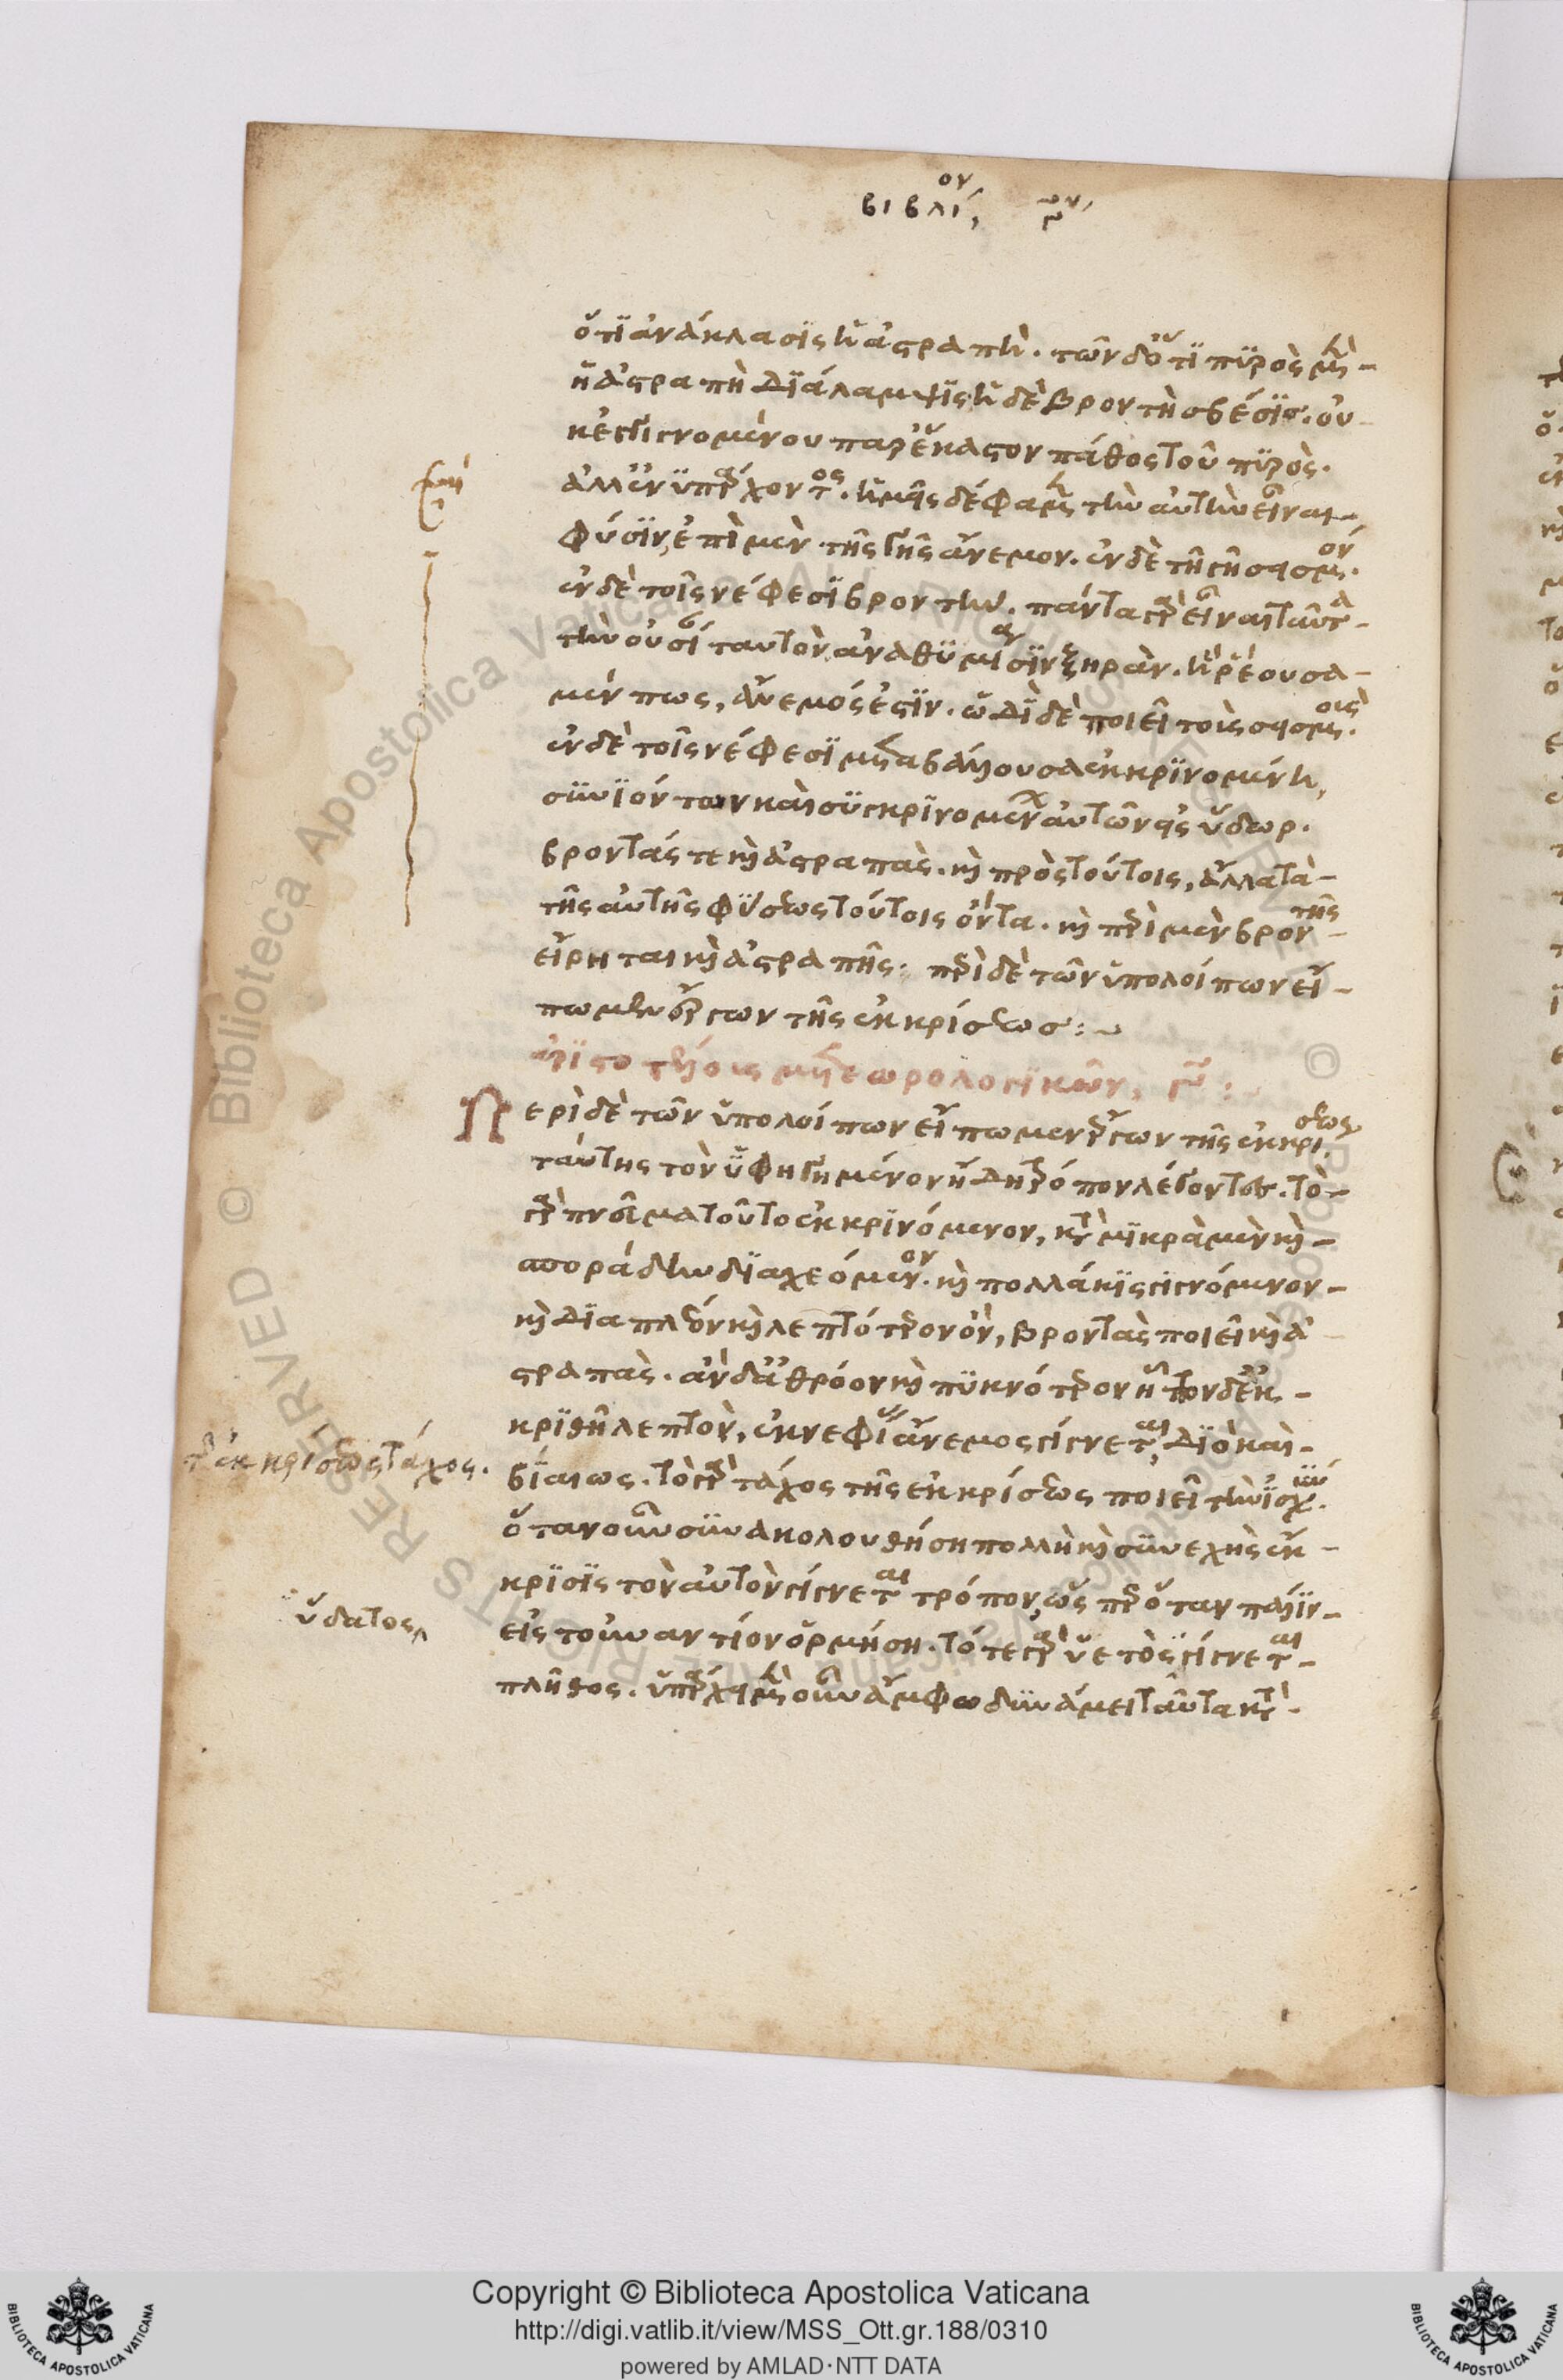 βιβλίον γον
ὅτι ἀνάκλασις ἡ ἀστραπή. τῶν δ' ὅτι πυρὸς μὲν
ἡ ἀστραπὴ διάλαμψις ἡ δὲ βροντὴ σβέσις. οὐ
κ ἐγγιγνομένου παρ' ἕκαστον πάθος τοῦ πυρός.
ἀλλ' ἐνυπάρχοντος. ἡμεῖς δέ φαμεν τὴν αὐτὴν εἶναι
φύσιν, ἐπὶ μὲν τῆς γῆς ἄνεμον. ἐν δὲ τῇ γῇ σεισμόν.
ἐν δὲ τοῖς νέφεσι βροντήν. πάντα γὰρ εἶναι ταῦτα
τὴν οὐσίαν ταυτὸν ἀναθυμίασιν ξηράν. ἣ ῥέουσα
μέν πως, ἄνεμός ἐστιν. ὡδὶ δὲ ποιεῖ τοὺς σεισμούς.
ἐν δὲ τοῖς νέφεσι μεταβάλλουσα ἐκκρινομένη,
συνιόντων καὶ συγκρινομένων αὐτῶν εἰς ὕδωρ.
βροντάς τε καὶ ἀστραπάς. καὶ πρὸς τούτοις, ἄλλα τὰ
τῆς αὐτῆς φύσεως τούτοις ὄντα. καὶ περὶ μὲν βροντῆς
εἴρηται καὶ ἀστραπῆς: περὶ δὲ τῶν ὑπολοίπων εἴ
πωμεν ἔργων τῆς ἐκκρίσεως:
ἀριστοτέλους μετεωρολογικῶν, γον:
Περὶ δὲ τῶν ὑπολοίπων εἴπωμεν ἔργων τῆς ἐκκρίσεως
ταύτης τὸν ὑφηγημένον ἤδη τρόπον λέγοντες. τὸ
γὰρ πνεῦμα τοῦτο ἐκκρινόμενον, κατὰ μικρὰ μὲν καὶ
σποράδην διαχεόμενον. καὶ πολλάκις γιγνόμενον
καὶ διαπλέον καὶ λεπτότερον ὂν, βροντὰς ποιεῖ καὶ ἀ
στραπάς. ἂν δ' ἀθρόον καὶ πυκνότερον ἧττον δ' ἐκ
κριθῇ λεπτὸν, ἐκνεφίας ἄνεμος γίγνεται, διὸ καὶ
βίαιως. τὸ γὰρ τάχος τῆς ἐκκρίσεως ποιεῖ τὴν ἰσχύν.
τῆς ἐκκρίσεως τάχος.
ὅταν οὖν συνακολουθήσῃ πολλὴ καὶ συνεχὴς ἔκ
κρισις τὸν αὐτὸν γίγνεται τρόπον, ὥσπερ ὅταν πάλιν
εἰς τοὐναντίον ὁρμήσῃ. τότε γὰρ ὑετὸς γίγνεται
ὕδατος
πλῆθος. ὑπάρχει μὲν οὖν ἄμφω δυνάμει ταῦτα κατὰ
Copyright © Biblioteca Apostolica Vaticana
http://digi.vatlib.it/view/MSS_Ott.gr.188/0310
powered by AMLAD·NTT DATA